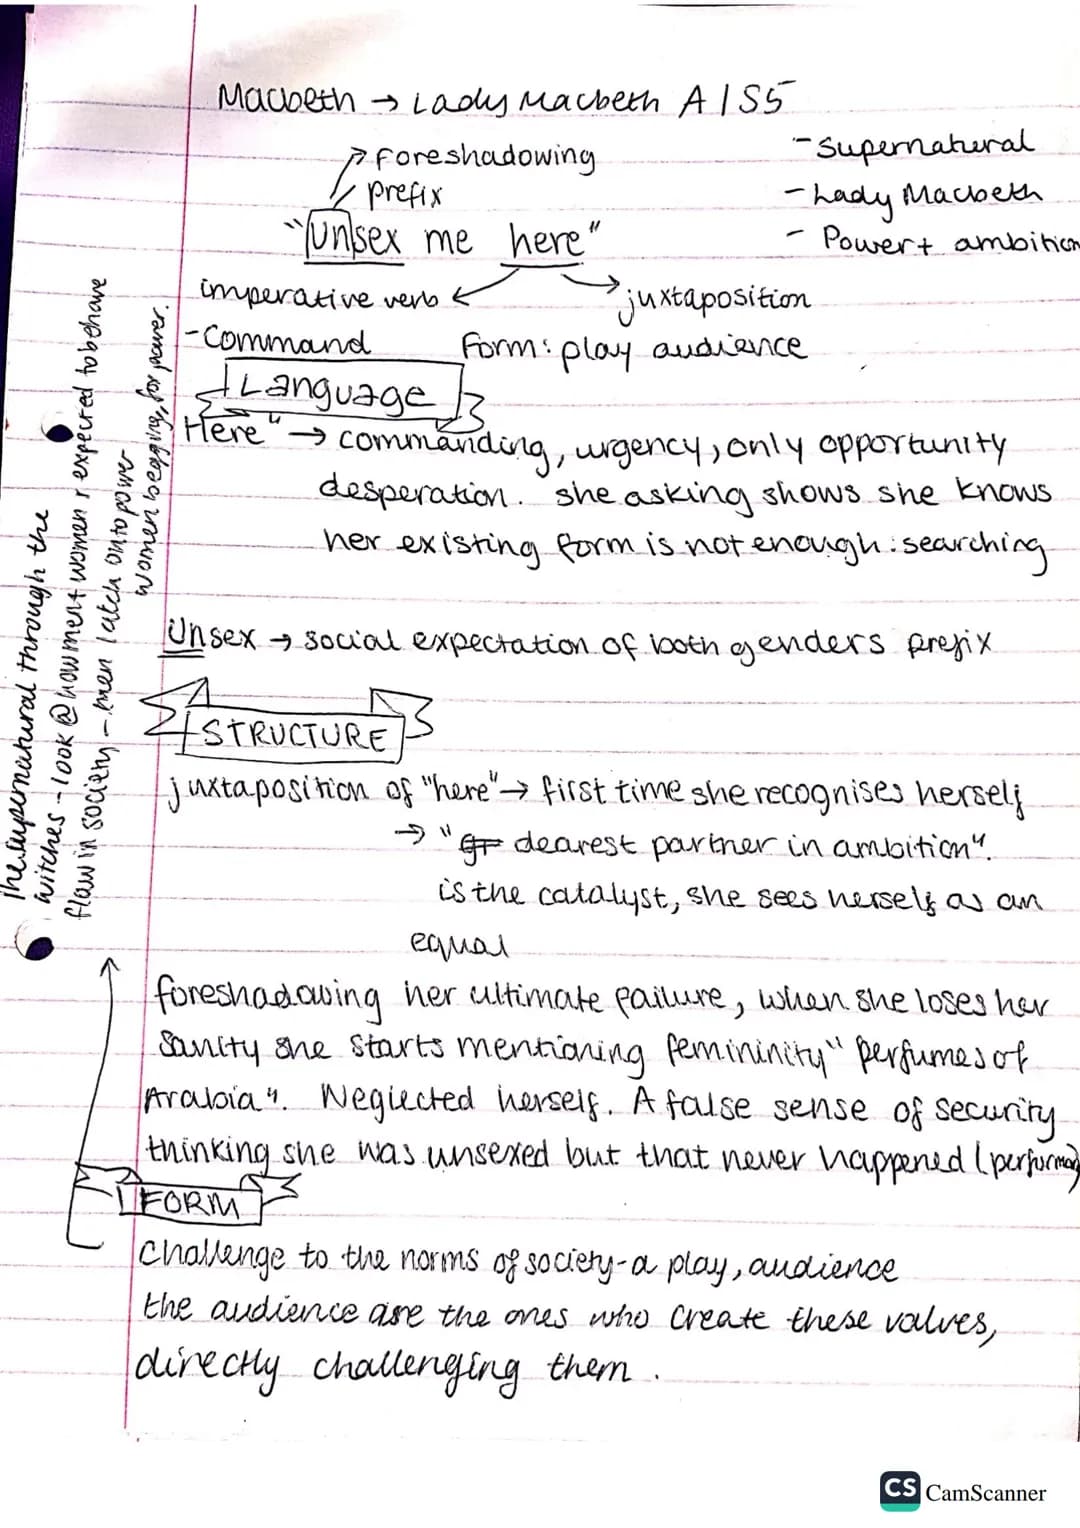 Macbeth → Lady Macbeth A1S5
- Supernatural
- Lady Macbeth
- Power + ambition
foreshadowing
prefix
"Unsex me here"
imperative verb
juxtaposition
- Command
Form: play audience
Language
"Here" → commanding, urgency, only opportunity
desperation. she asking shows she knows
her existing form is not enough: searching
Unsex → social expectation of both genders prefix
STRUCTURE
juxtaposition of "here" → first time she recognises herself
→ "dearest partner in ambition".
is the catalyst, she sees herself as an
equal
foreshadowing her ultimate failure, when she loses her
Sanity she starts mentioning femininity "perfumes of
Arabia". Neglected herself. A false sense of security
thinking she was unsexed but that never happened (performan
FORM
Challenge to the norms of society - a play, audience
the audience are the ones who create these values,
directly challenging them.
The supernatural through the
witches - look @ how men + women r expected to behave
flaw in society - men latch on to power
women begging, for power.
CS CamScanner